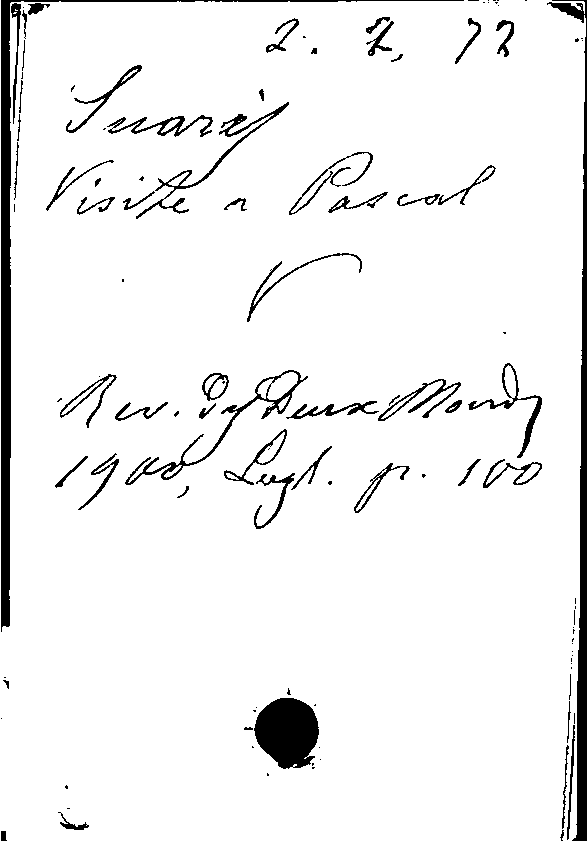 2. 2. 72
Suarès
Visite a Pascal
V
Rev. des Deux Mondes
1900, Sept. p. 100